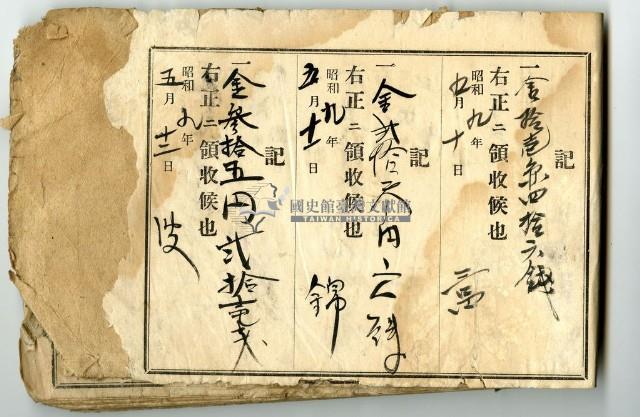 記
一金拾壱円四拾六銭
右正ニ領收候也
昭和九年
五月十日
記
一金弐拾六円六銭
右正ニ領收候也
昭和九年
五月十一日
錦
記
一金参拾五円弐拾壱戋
右正ニ領收候也
昭和九年
五月十二日
國史館臺灣文獻館
TAIWAN HISTORICA